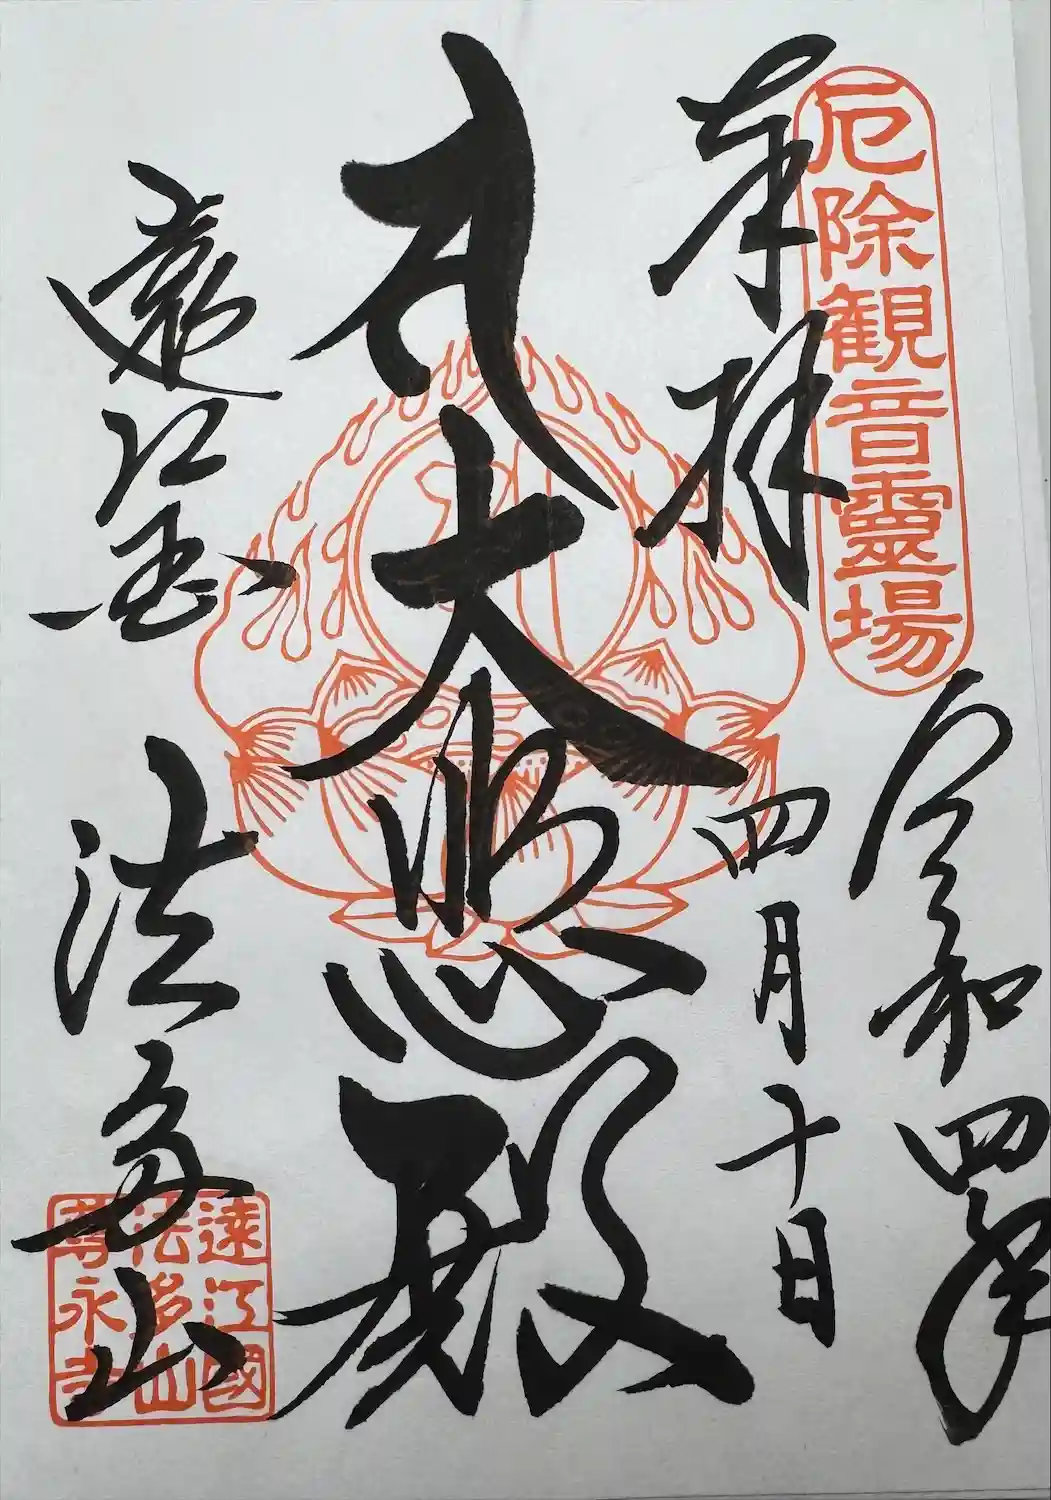 厄除観音霊場
奉拝
令和四年
四月十日
大悲殿
遠江国
法多山
遠江國
法多山
尊永寺